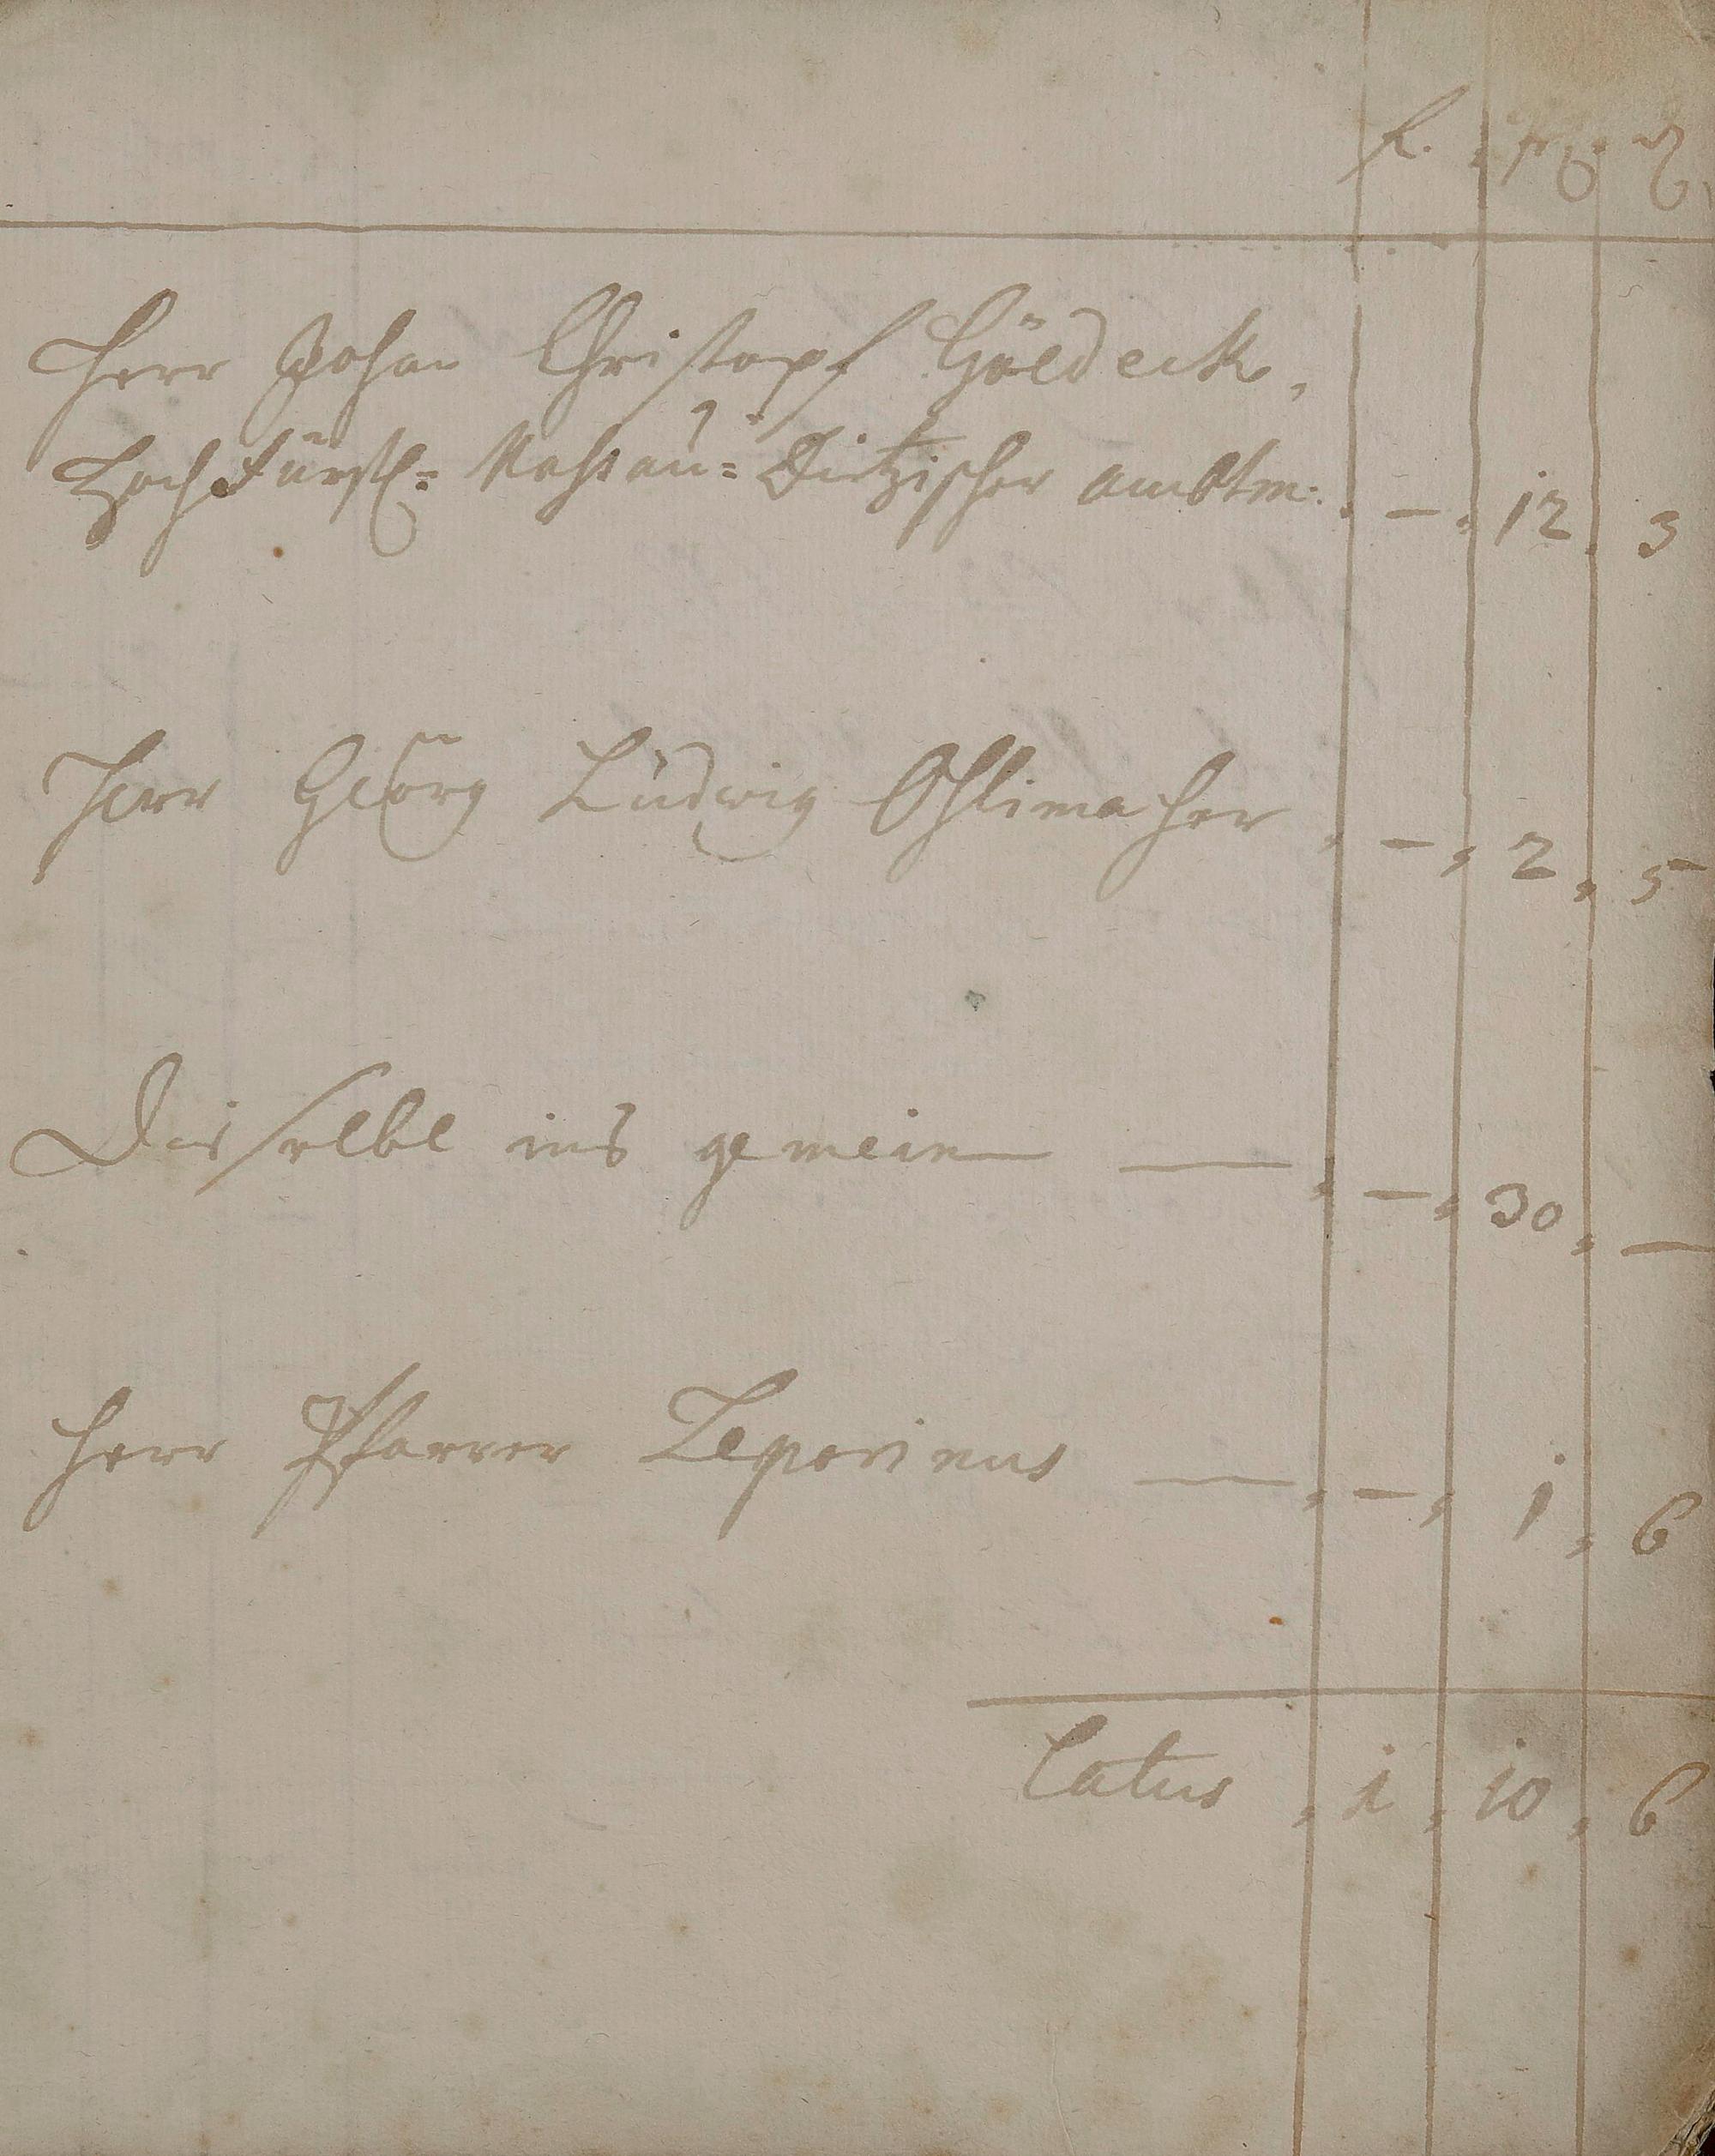 fl. xr ₰
Herr Johan Christopf Göldeck,
Hochfürstl= Nassau= Dietzischer Ambtm: — 12 3
Herr Georg Ludwig Ohlimacher — 2 5
Dieselbe ins gemein — — 30 —
Herr Pfarrer Leporinus — — 1 6
Latus 1 10 6